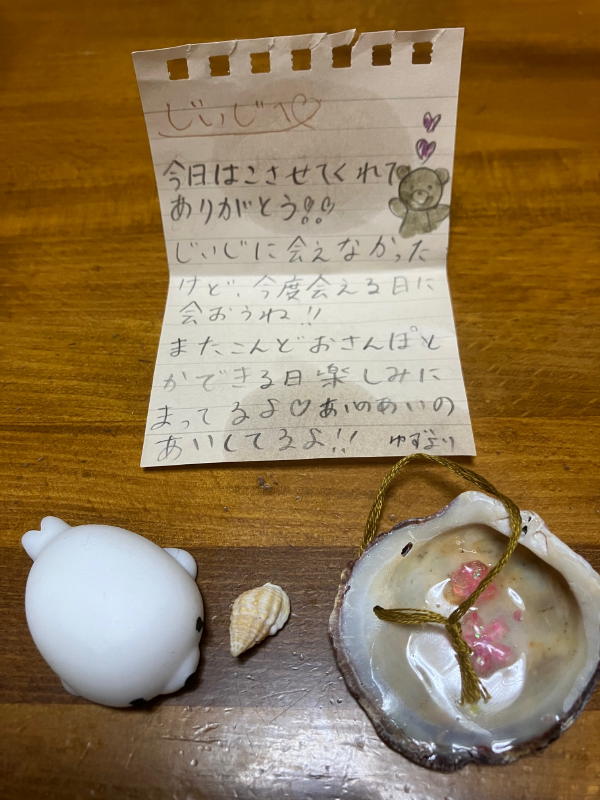 じいじへ♡
今日はこさせてくれて
ありがとう!!
じいじに会えなかった
けど、今度会える日に
会おうね!!
またこんどおさんぽと
かできる日楽しみに
まってるよ♡あいのあいの
あいしてるよ!! ゆずより